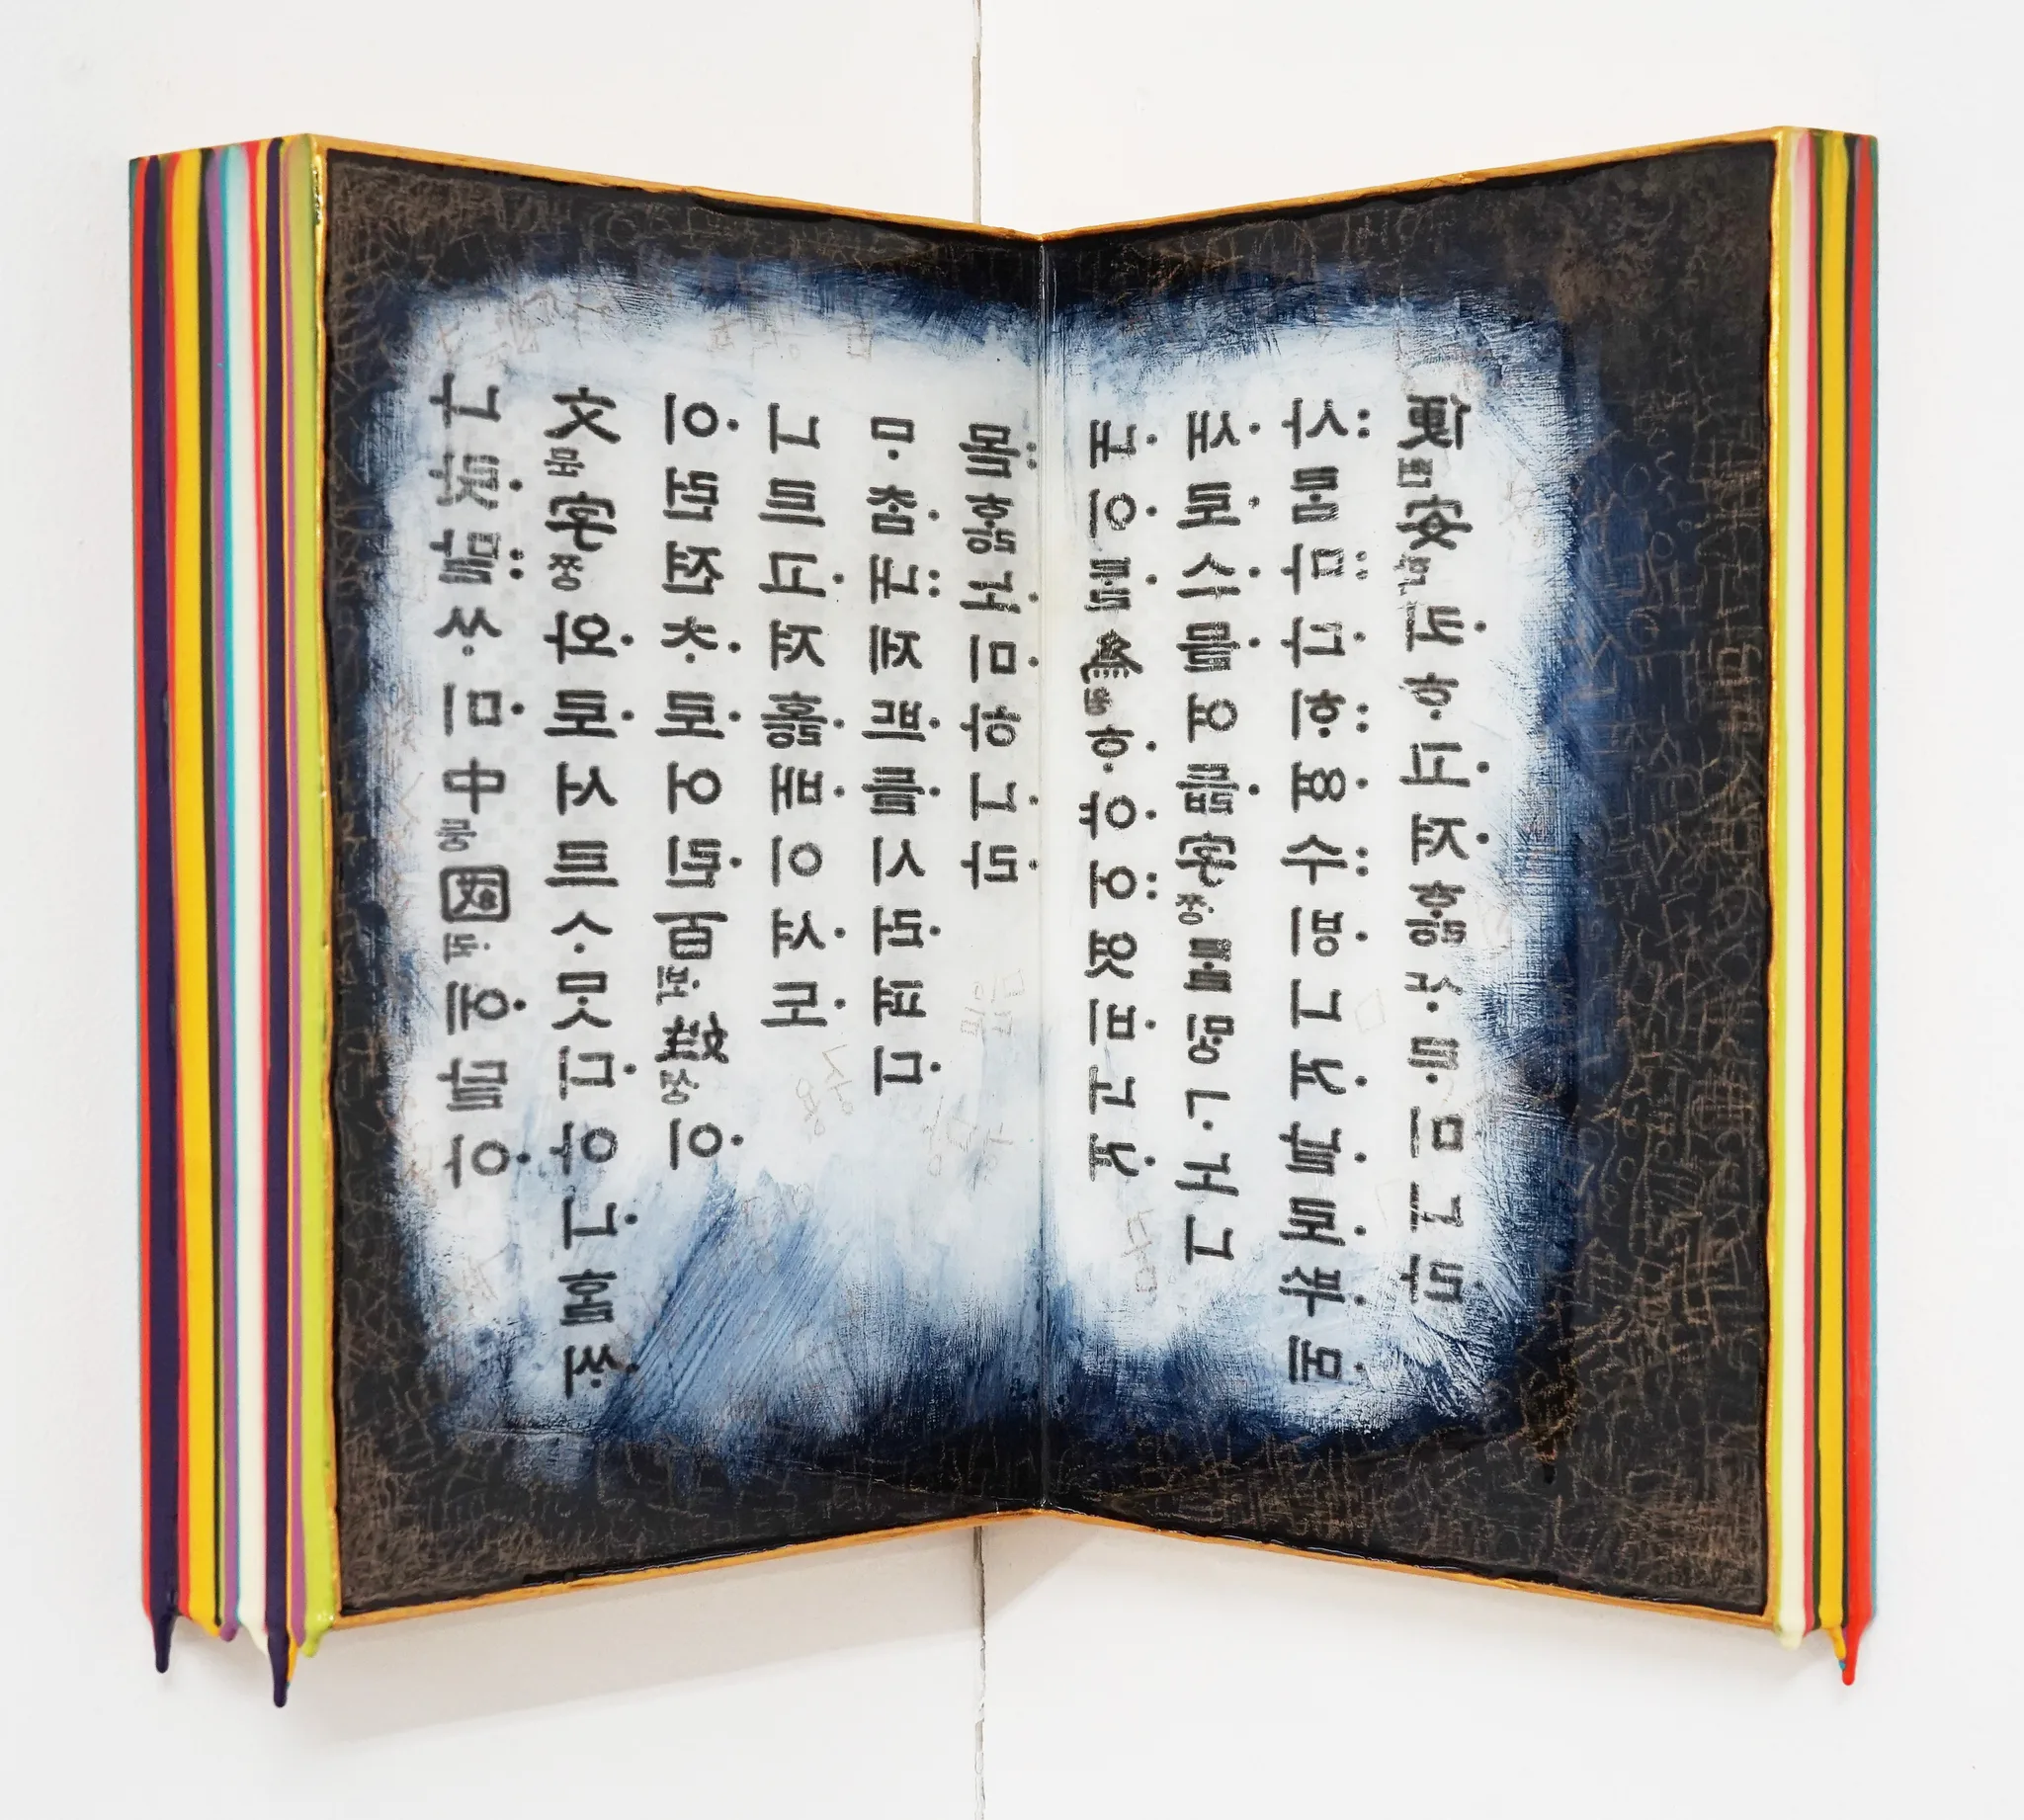 나랏말ᄊᆞ미中듕國귁에달아
文문字ᄍᆞᆼ와로서르ᄉᆞᄆᆞᆺ디아니ᄒᆞᆯᄊᆡ
이런젼ᄎᆞ로어린百ᄇᆡᆨ姓셩이
니르고져홇배이셔도
ᄆᆞᄎᆞᆷ내제ᄠᅳ들시러펴디
몯ᄒᆞᇙ노미하니라
내이ᄅᆞᆯ爲윙ᄒᆞ야어엿비너겨
새로스믈여듧字ᄍᆞᆼᄅᆞᆯᄆᆡᇰᄀᆞ노니
사ᄅᆞᆷ마다ᄒᆡᅇᅧ수ᄫᅵ니겨날로ᄡᅮ메
便뼌安ᅙᅡᆫ킈ᄒᆞ고져ᄒᆞᇙᄯᆞᄅᆞ미니라